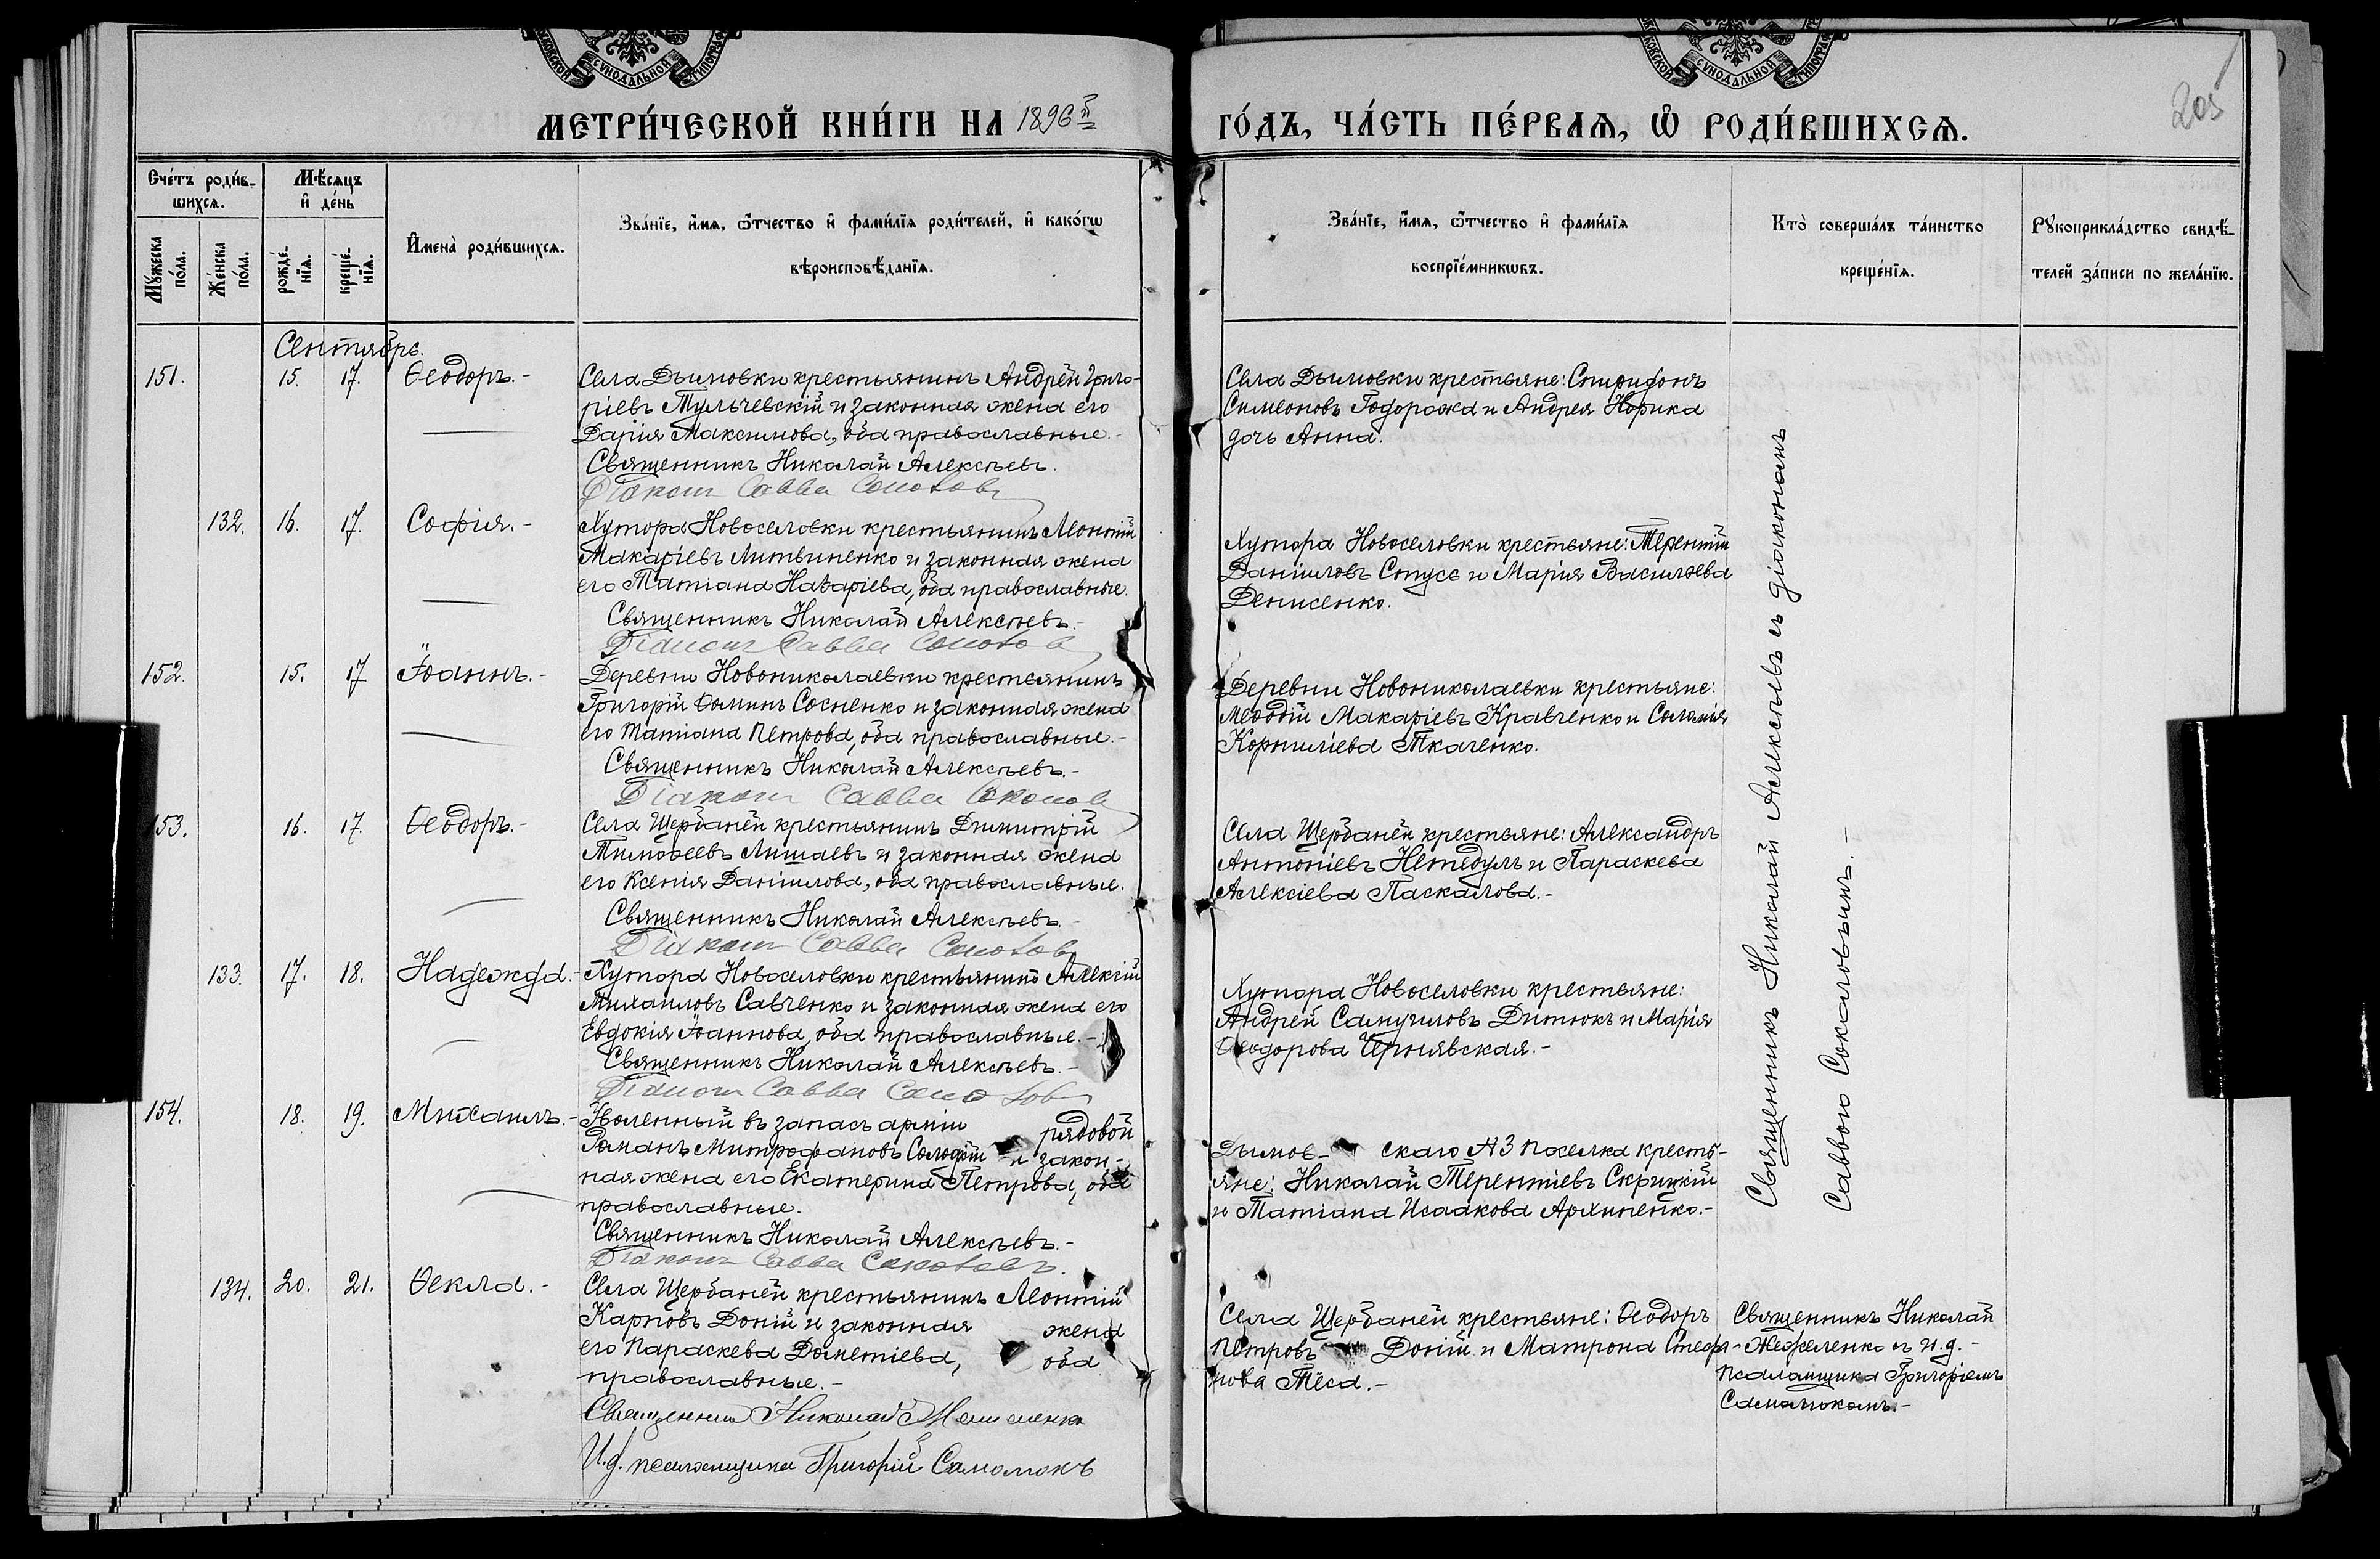 МОСКОВСКОЙ СѴНОДАЛЬНОЙ ТИПОГРАФ
МОСКОВСКОЙ СѴНОДАЛЬНОЙ ТИПОГРАФ
МЕТРИ́ЧЕСКОЙ КНИ́ГИ НА 1896й
ГО́ДЪ, ЧА́СТЬ ПЕ́РВАЯ, Ѡ РОДИ́ВШИХСЯ.
205
Сче́тъ роди́в-
шихся.
Мѣ́сяцъ
и де́нь
Му́жеска по́ла.
Же́нска по́ла.
рожде́-
нія.
креще́-
нія.
Имена̀ роди́вшихся.
Зва́ніе, и́мя, ѻ́тчество и фами́лія роди́телей, и како́гѡ
вѣроисповѣ́данія.
Зва́ніе, и́мя, ѻ́тчество и фами́лія
воспріе́мникѡвъ.
Кто̀ соверша́лъ та́инство
креще́нія.
Рукоприкла́дство свидѣ́-
телей за́писи по жела́нію.
Сентябрь.
151. 15. 17. Ѳеодоръ.-
Села Дымовки крестьянинъ Андрей Григо-
ріевъ Мульчевскій и законная жена его
Дарія Максимова, оба православные.-
Священникъ Николай Алексѣевъ.
Діаконъ Савва Соколовъ
Села Дымовки крестьяне: Спиридонъ
Симеоновъ Годорожа и Андрея Норика
дочь Анна.
132. 16. 17. Софія.-
Хутора Новоселовки крестьянинъ Леонтій
Макаріевъ Литвиненко и законная жена
его Татіана Назаріева, оба православные.
Священникъ Николай Алексѣевъ.-
Діаконъ Савва Соколовъ
Хутора Новоселовки крестьяне: Терентій
Даніиловъ Стусь и Марія Васильева
Денисенко.
152. 15. 17 Іоаннъ.-
Деревни Новониколаевки крестьянинъ
Григорій Ѳоминъ Сосненко и законная жена
его Татіана Петрова, оба православные.-
Священникъ Николай Алексѣевъ.-
Діаконъ Савва Соколовъ
Деревни Новониколаевки крестьяне:
Меѳодій Макаріевъ Кравченко и Саломія
Корниліева Ткаченко.
153. 16. 17. Ѳеодоръ.-
Села Щербаней крестьянинъ Димитрій
Тимоѳеевъ Лишаевъ и законная жена
его Ксенія Даніилова, оба православные.
Священникъ Николай Алексѣевъ.-
Діаконъ Савва Соколовъ
Села Щербаней крестьяне: Александръ
Антоніевъ Нетедулъ и Параскева
Алексіева Паскалова.-
133. 17. 18. Надежда.-
Хутора Новоселовки крестьянинъ Алексій
Михаиловъ Савченко и законная жена его
Евдокія Іоаннова, оба православные.-
Священникъ Николай Алексѣевъ.-
Діаконъ Савва Соколовъ
Хутора Новоселовки крестьяне:
Андрей Самуиловъ Дитюкъ и Марія
Ѳеодорова Чернявская.-
154. 18. 19. Михаилъ.-
Уволенный въ запасъ арміи рядовой
Романъ Митрофановъ Солодкій и закон-
ная жена его Екатерина Петрова, оба
православные.
Священникъ Николай Алексѣевъ.-
Діаконъ Савва Соколовъ.
Дымов- скаго №3 поселка кресть-
яне: Николай Терентіевъ Скрицкій
и Татіана Исаакова Архипенко.-
Священникъ Николай Алексѣевъ съ діакономъ
Саввою Соколовымъ.-
134. 20. 21. Ѳекла.-
Села Щербаней крестьянинъ Леонтій
Карповъ Доній и законная жена
его Параскева Дометіева, оба
православные.-
Священникъ Николай
И.д. псаломщика Григорій Самотокъ
Села Щербаней крестьяне: Ѳеодоръ
Петровъ Доній и Матрона Стефа-
нова Теса.-
Священникъ Николай
съ и.д.-
псаломщика Григоріемъ
Самотокомъ.-